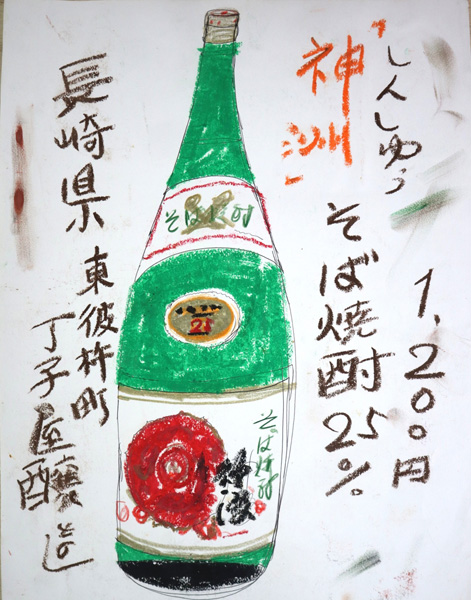 1,200円
「しんしゅう
そば焼酎25%
神洲」
そば焼酎
そば焼酎
長崎県
東彼杵町
丁子屋醸造